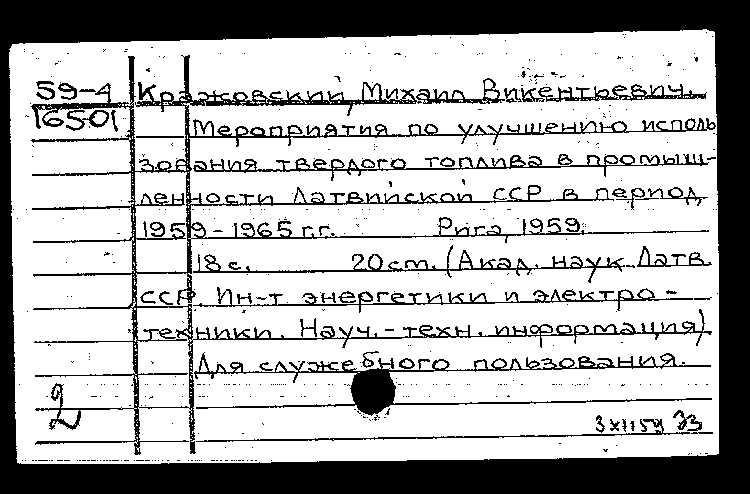 59-4 Кражовский, Михаил Викентьевич.
16501
Мероприятия по улучшению исполь
зования твердого топлива в промыш-
ленности Латвийской ССР в период
1959-1965 г.г. Рига, 1959.
18 с. 20 cm. (Акад. наук Латв.
ССР. Ин-т энергетики и электро-
техники. Науч.-техн. информация)
Для служебного пользования.
2
3 XII 59